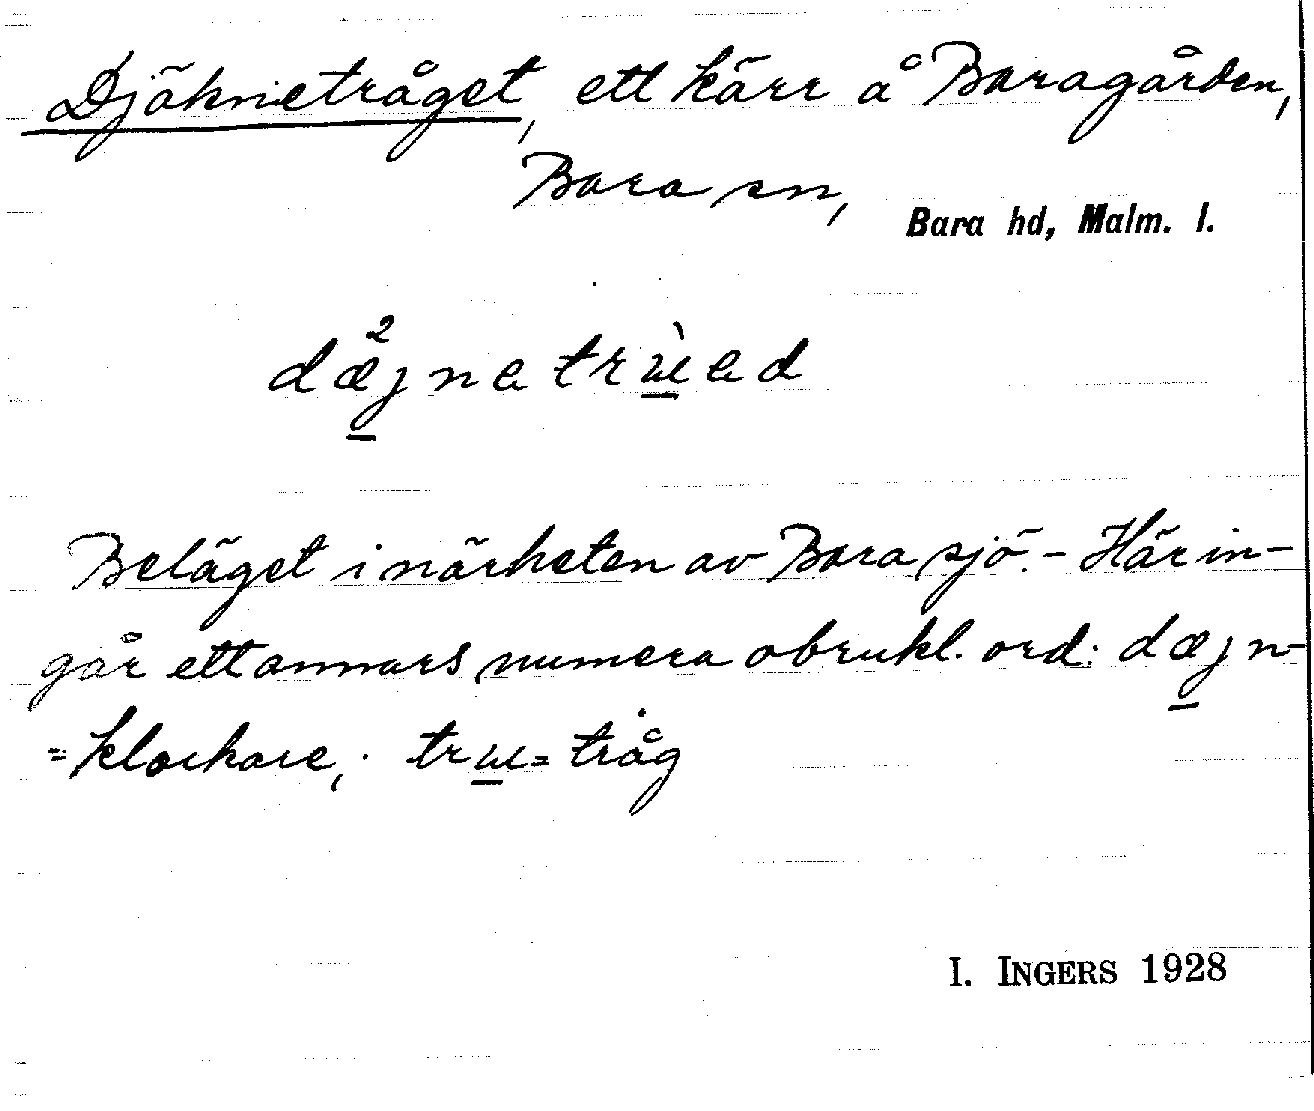 Djäknetråget, ett kärr å Baragården,
Bara sn,
Bara hd, Malm. l.
dæ²jnetrùed
Beläget i närheten av Bara sjö. - Här in-
går ett annars numera obrukl. ord: dæjn-
= klockare; tru = tråg
I. INGERS 1928